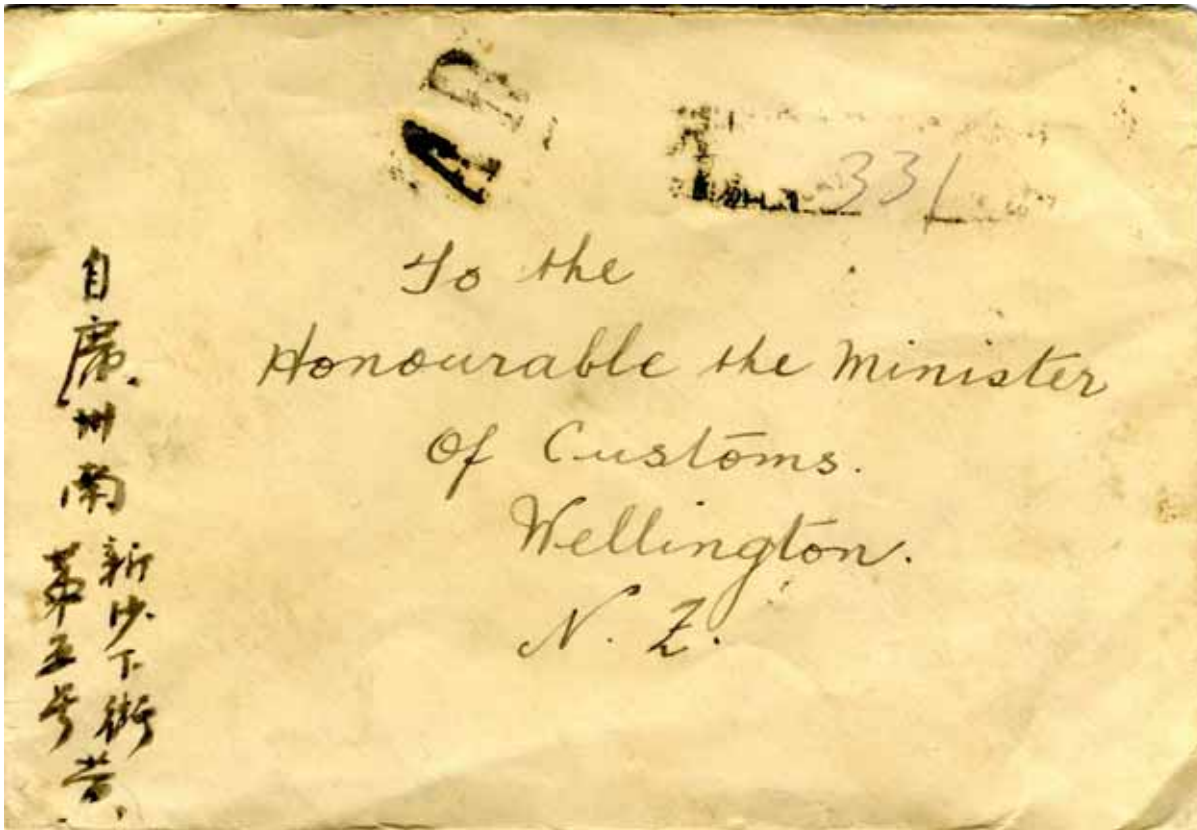 AR
331
To the
Honourable the Minister
Of Customs.
Wellington.
N. Z.
自廣州南
新沙下街
第五号